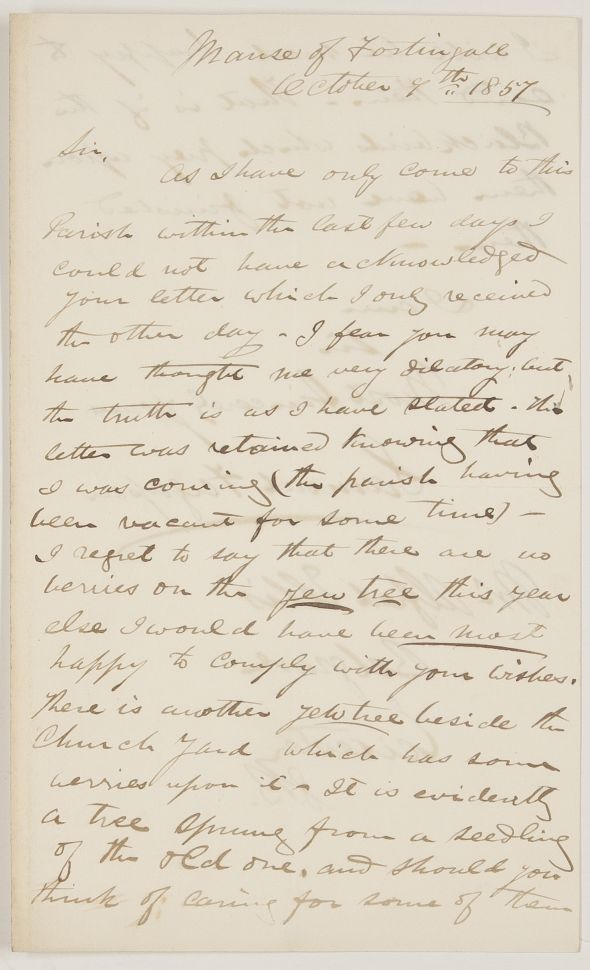 Manse of Fortingall
October 9th 1857
Sir,
As I have only come to this
Parish within the last few days I
could not have acknowledged
your letter which I only received
the other day - I fear you may
have thought me very dilatory; but
the truth is as I have stated. The
letter was retained knowing that
I was coming (the parish having
been vacant for some time) -
I regret to say that there are no
berries on the yew tree this year
else I would have been most
happy to comply with your wishes.
There is another yew tree beside the
Church Yard which has some
berries upon it - It is evidently
a tree sprung from a seedling
of the old one, and should you
think of caring for some of them